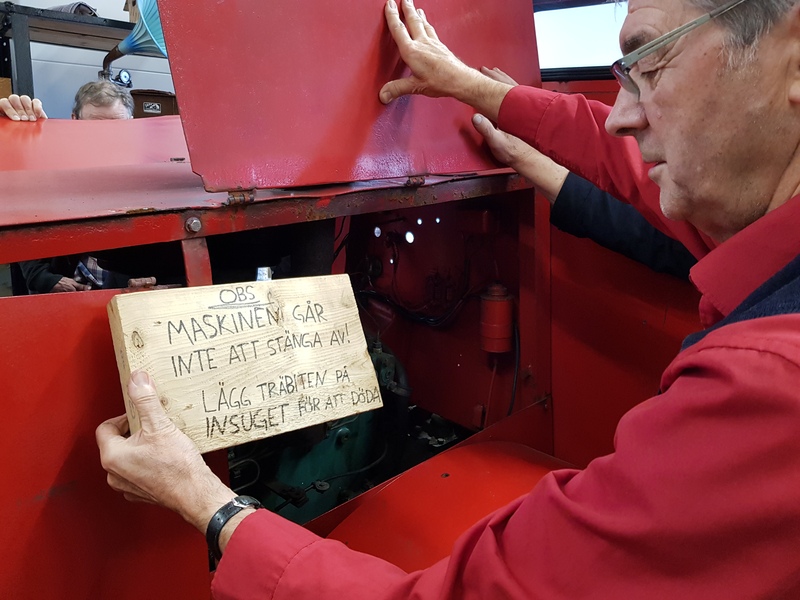 OBS
MASKINEN GÅR
INTE ATT STÄNGA AV!
LÄGG TRÄBITEN PÅ
INSUGET FÖR ATT DÖDA